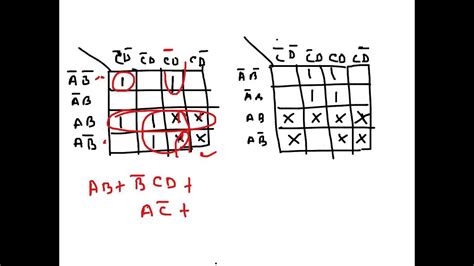 C̅D̅ C̅D C̅D̅ CD̅
A̅B̅ 1 1
A̅B
AB 1 1 X X
AB̅ 1 X X
AB + B̅CD +
AC̅ +
C̅D̅ C̅D CD CD̅
A̅B̅ 1 1
A̅B 1 1
AB X X X X
AB̅ X X X